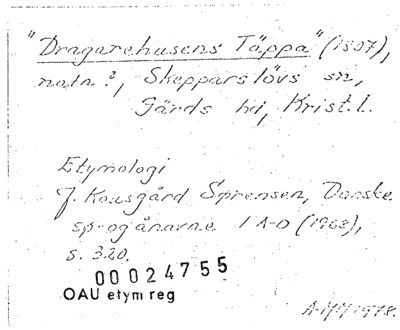 "Dragarehusens Täppa" (1807),
natn?, Skepparslövs sn,
Gärds hd, Krist. l.
Etymologi
J. Kousgård Sørensen, Danske
sø- og ånavne 1 A-D (1968),
s. 320.
00024755
OAU etym reg
1978.